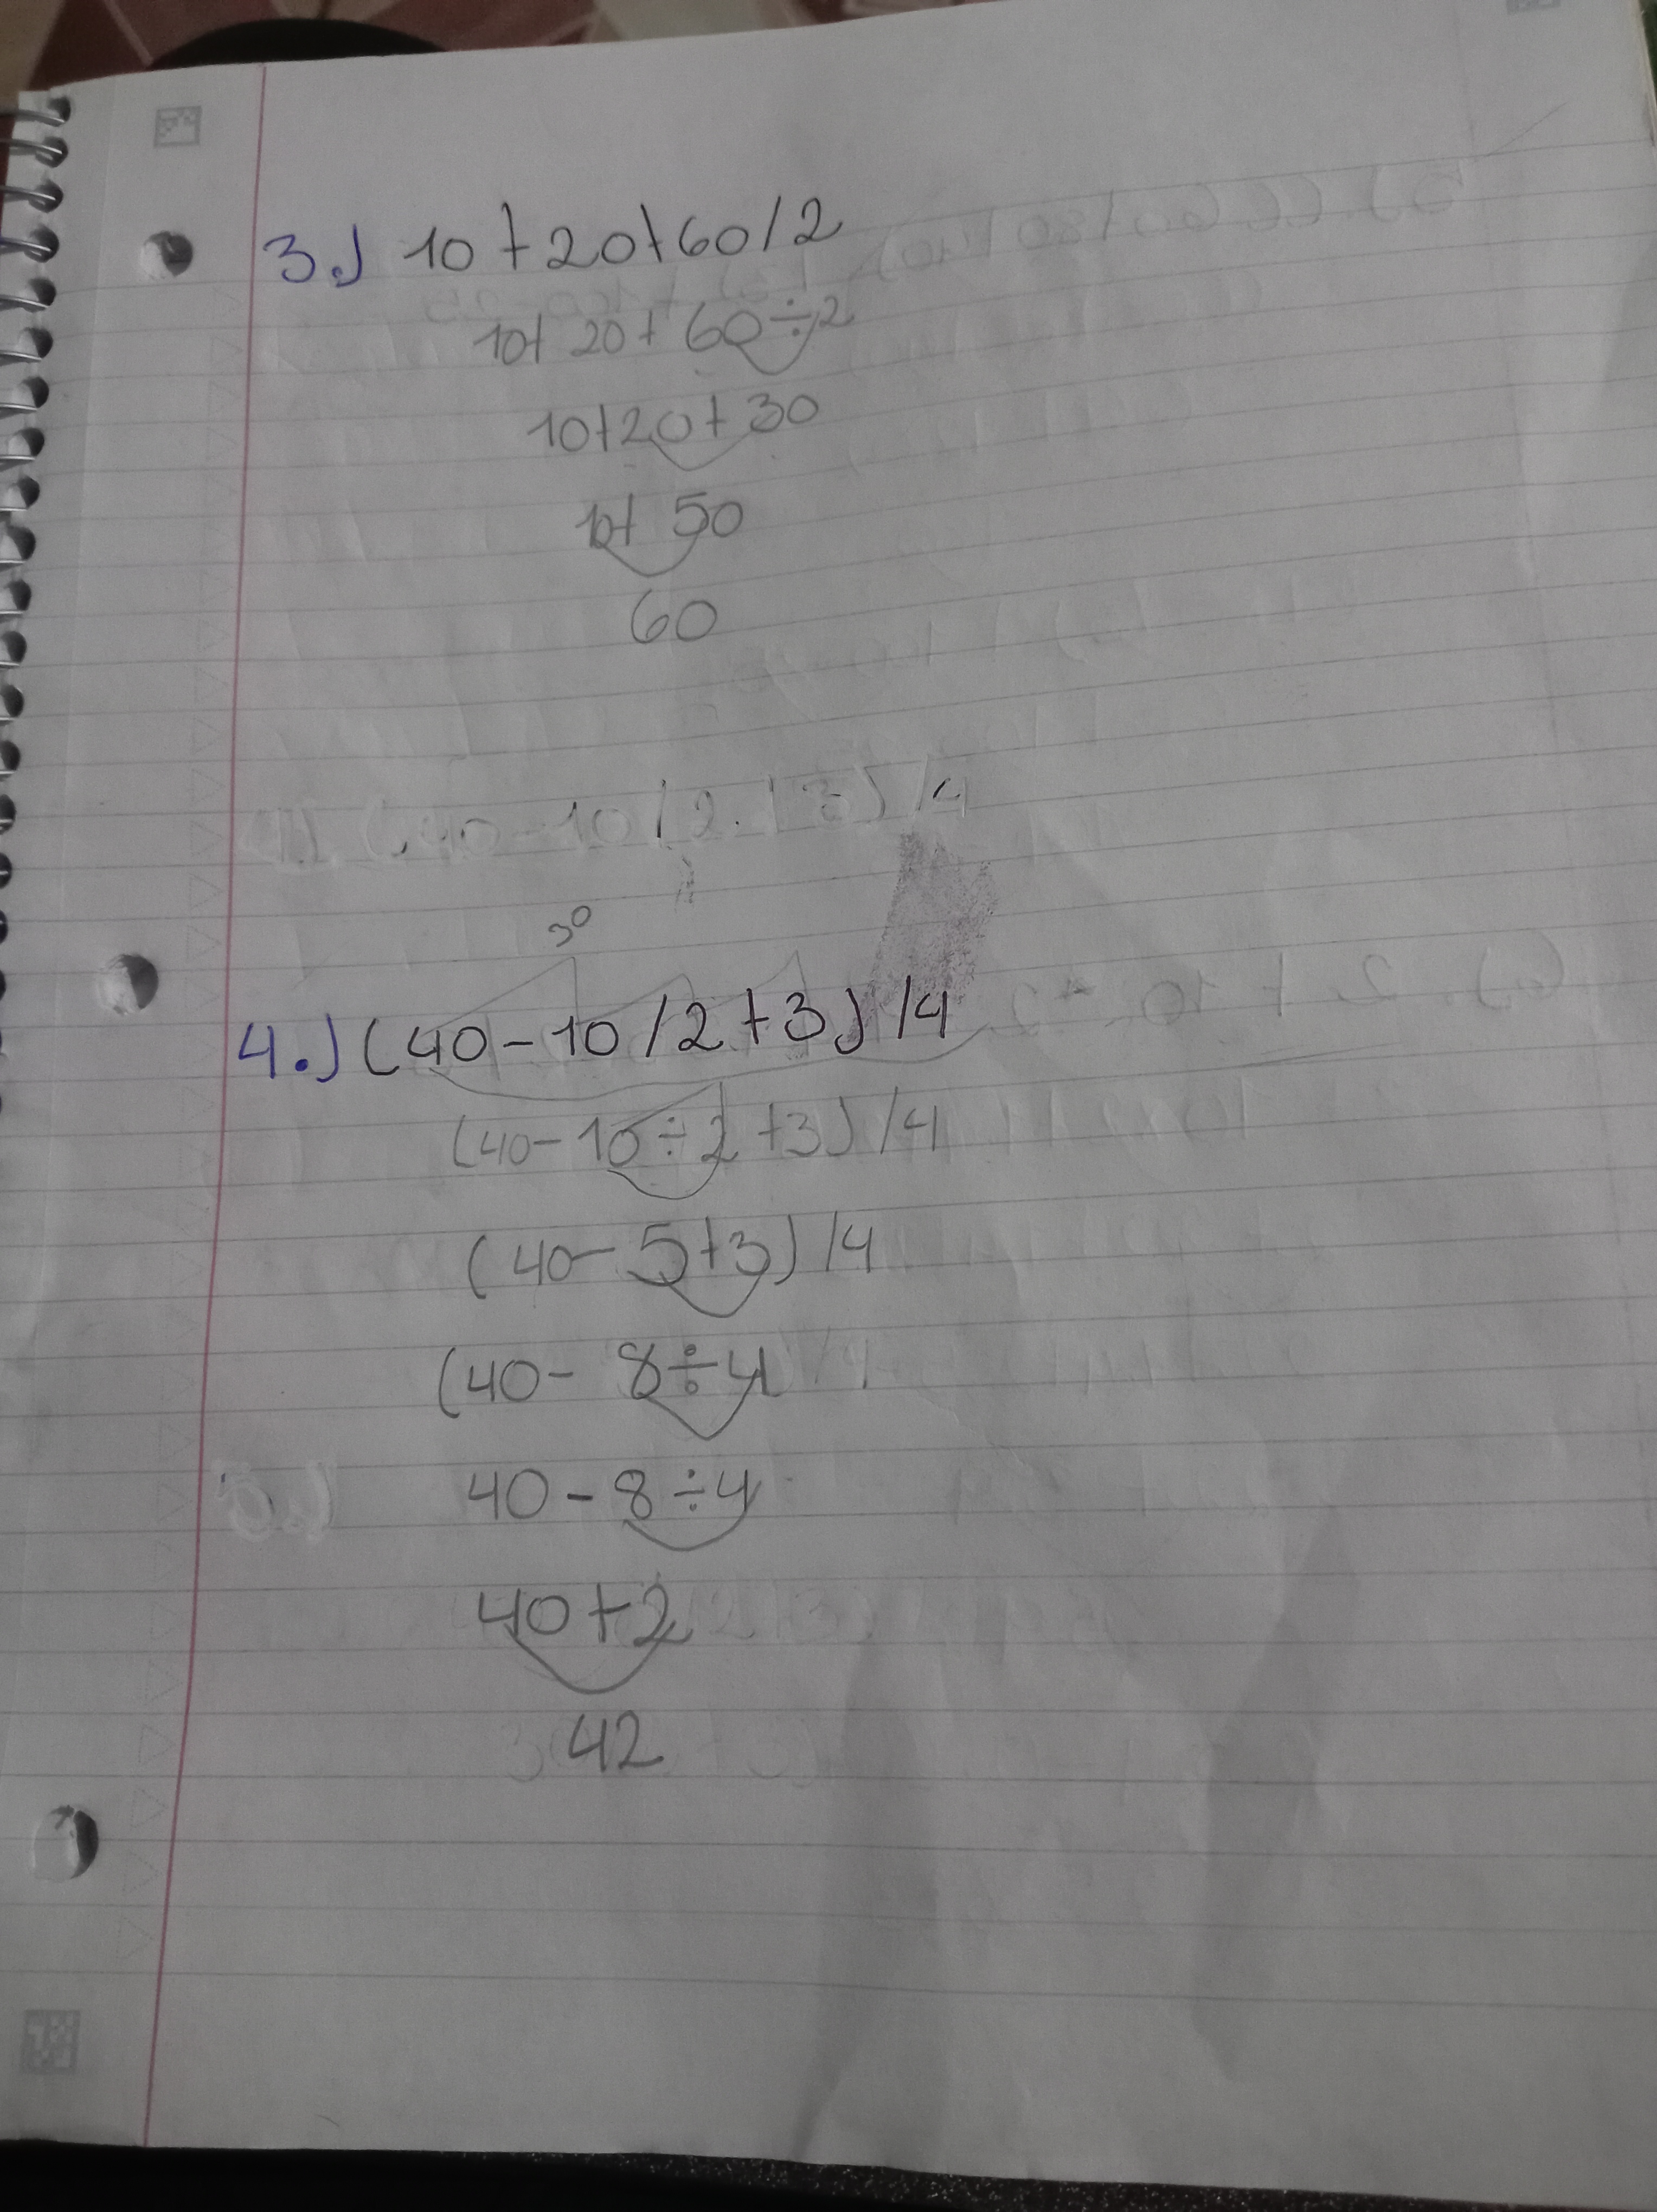 3.) 10+20+60/2
10+ 20+ 60÷2
10+20+30
10+ 50
60
4.) (40-10/2+3)/4
30
4.) (40-10/2+3)/4
(40-10÷2+3)/4
(40-5+3)/4
(40- 8÷4
5.) 40-8÷4
40+2
42